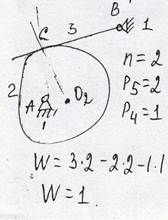 B
C
3
1
2
A
O2
1
n = 2
P5 = 2
P4 = 1
W = 3·2 - 2·2 - 1·1
W = 1.